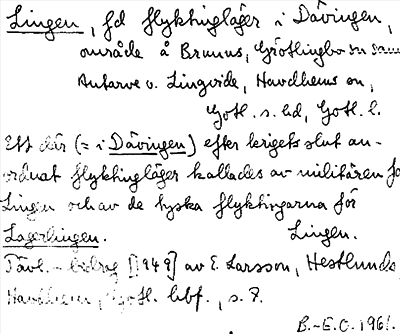 Lingen, fd flyktingläger i Dävingen,
område å Brunns, Grötlingbo sn samt
Autarve o. Lingvide, Havdhems sn,
Gotl. s. hd, Gotl. l.
Ett där (= i Dävingen) efter krigets slut an-
ordnat flyktingläger kallades av militären för
Lingen och av de tyska flyktingarna för
Lagerlingen. Lingen.
Tävl.-bidrag [1949] av E. Larsson, Hestlunds,
Havdhem, Gotl. hbf., s. 7.
B.-E.O. 1961.